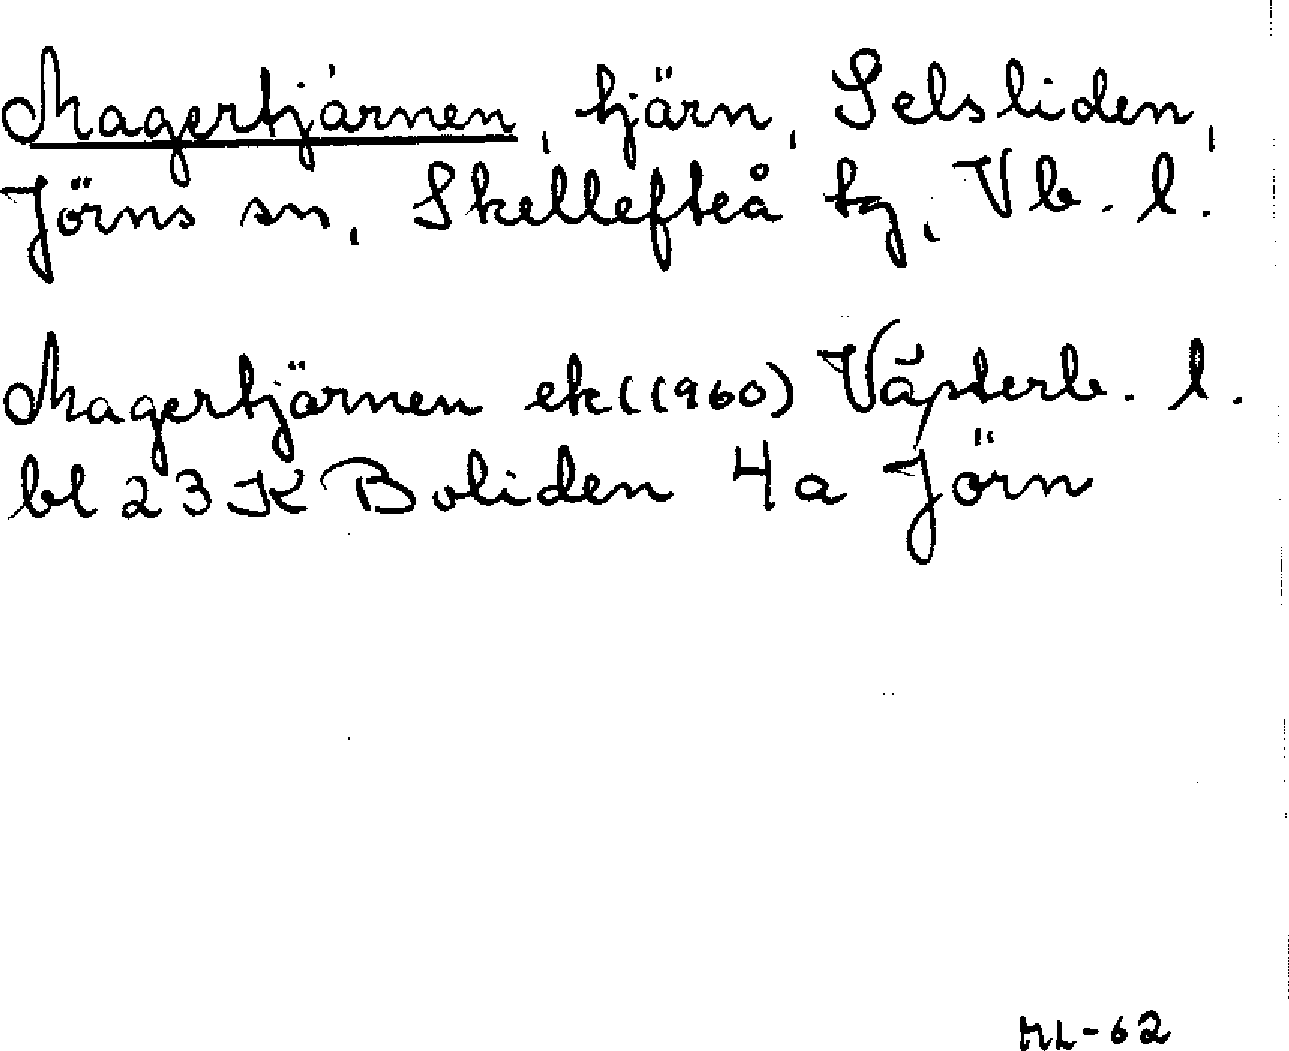 Magertjärnen, tjärn, Selsliden,
Jörns sn, Skellefteå tg, Vb. l.
Magertjärnen ek (1960) Västerb. l.
bl 23 K Boliden 4a Jörn
ML-62